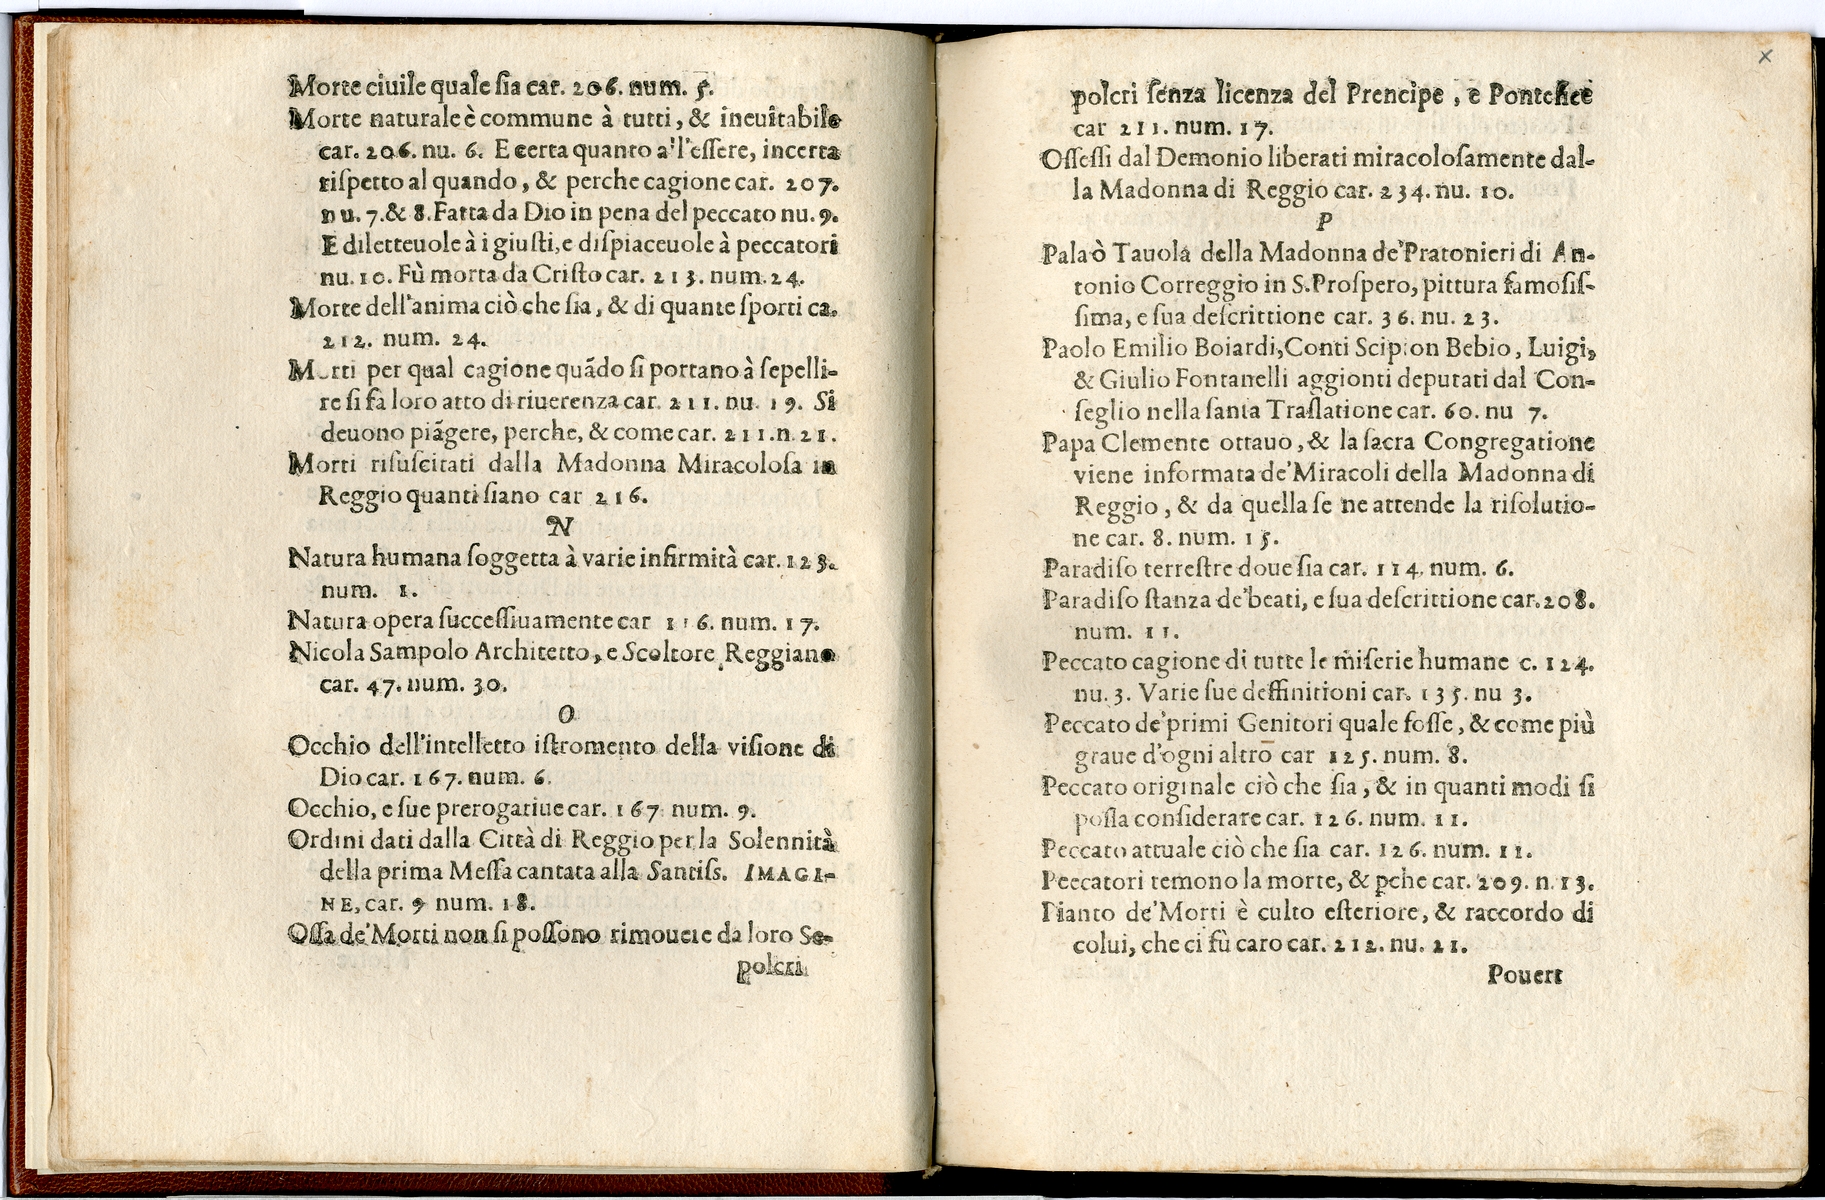 Morte ciuile quale ſia car. 206. num. 5.
Morte naturale è commune à tutti, & ineuitabile
car. 206. nu. 6. E certa quanto all'eſſere, incerta
riſpetto al quando, & perche cagione car. 207.
nu. 7. & 8. Fatta da Dio in pena del peccato nu. 9.
E diletteuole à i giuſti, e diſpiaceuole à peccatori
nu. 10. Fù morta da Criſto car. 213. num. 24.
Morte dell'anima ciò che ſia, & di quante ſporti ca.
212. num. 24.
Morti per qual cagione quādo ſi portano à ſepelli-
re ſi fà loro atto di riuerenza car. 211. nu. 19. Si
deuono piāgere, perche, & come car. 211. n. 21.
Morti riſuſcitati dalla Madonna Miracoloſa in
Reggio quanti ſiano car 216.
N
Natura humana ſoggetta à varie infirmità car. 123.
num. 1.
Natura opera ſucceſſiuamente car 116. num. 17.
Nicola Sampolo Architetto, e Scoltore Reggiano
car. 47. num. 30.
O
Occhio dell'intelletto iſtromento della viſione di
Dio car. 167. num. 6.
Occhio, e ſue prerogatiue car. 167 num. 9.
Ordini dati dalla Città di Reggio per la Solennità
della prima Meſſa cantata alla Santiſs. IMAGI-
NE, car. 9 num. 18.
Oſſa de'Morti non ſi poſſono rimouere da loro Se-
polcri
polcri ſenza licenza del Prencipe, e Pontefice
car 211. num. 17.
Oſſeſſi dal Demonio liberati miracoloſamente dal-
la Madonna di Reggio car. 234. nu. 10.
P
Pala ò Tauola della Madonna de'Pratonieri di An-
tonio Correggio in S. Proſpero, pittura famoſiſ-
ſima, e ſua deſcrittione car. 36. nu. 23.
Paolo Emilio Boiardi, Conti Scipion Bebio, Luigi,
& Giulio Fontanelli aggionti deputati dal Con-
ſeglio nella ſanta Traſlatione car. 60. nu 7.
Papa Clemente ottauo, & la ſacra Congregatione
viene informata de'Miracoli della Madonna di
Reggio, & da quella ſe ne attende la riſolutio-
ne car. 8. num. 15.
Paradiſo terreſtre doue ſia car. 114. num. 6.
Paradiſo ſtanza de'beati, e ſua deſcrittione car. 208.
num. 11.
Peccato cagione di tutte le miſerie humane c. 124.
nu. 3. Varie ſue deffinitioni car. 135. nu 3.
Peccato de'primi Genitori quale foſſe, & come più
graue d'ogni altro car 125. num. 8.
Peccato originale ciò che ſia, & in quanti modi ſi
poſſa conſiderare car. 126. num. 11.
Peccato attuale ciò che ſia car. 126. num. 11.
Peccatori temono la morte, & ꝑche car. 209. n. 13.
Pianto de'Morti è culto eſteriore, & raccordo di
colui, che ci fù caro car. 212. nu. 21.
Pouert